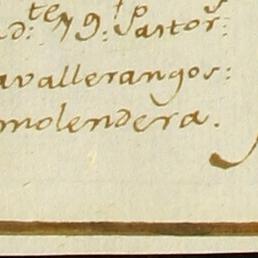 d: te 79: Pastor:
avallerangos:
molendera.